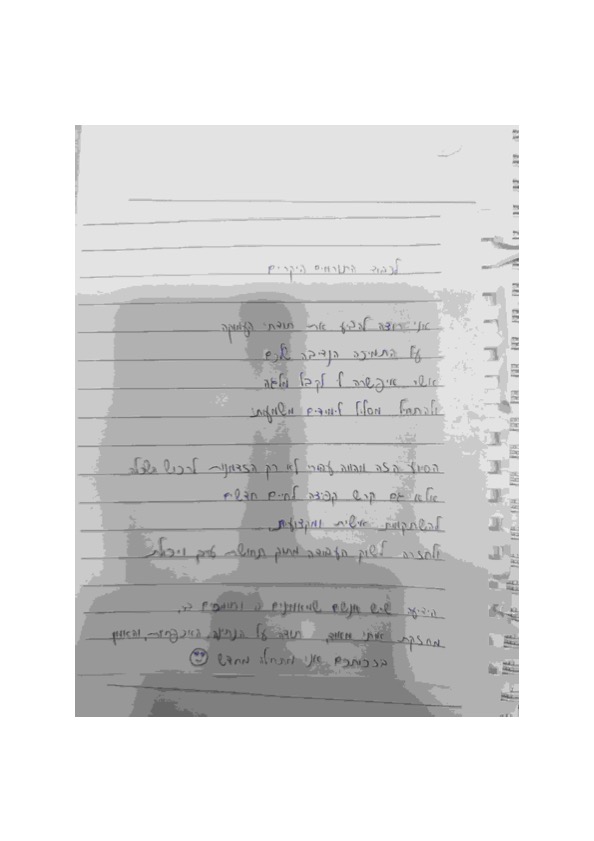 לכבוד התורמים היקרים
אני רוצה להביע את תודתי העמוקה
על התמיכה הנדיבה שלכם
אשר איפשרה לי לקבל מלגה
ולהתחיל מסלול לימודים משמעותי.
הסיוע הזה מהווה עבורי לא רק הזדמנות לרכוש השכלה
אלא גם קרש קפיצה לחיים חדשים
להשתקמות אישית ומקצועית,
ולחזרה לשוק העבודה מתוך תחושת ערך ויכולת.
הידיעה שיש אנשים שמאמינים בי ותומכים בי,
מחזקת אותי מאוד. תודה על הנתינה, האכפתיות, והאמון
בזכותכם אני מתחילה מחדש